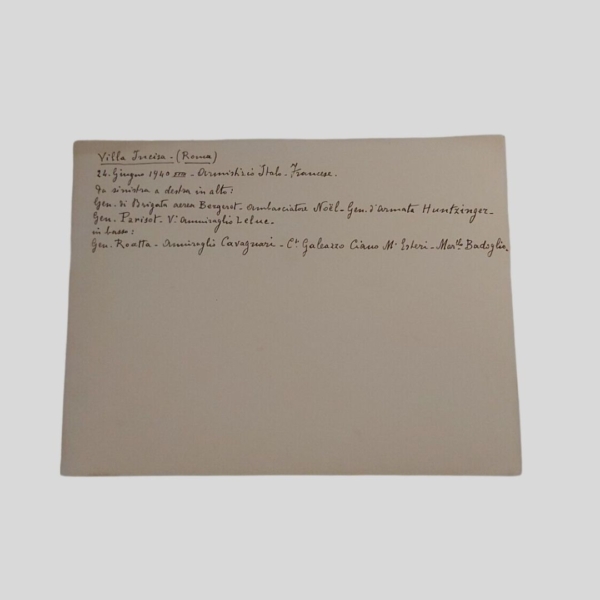 Villa Incisa - (Roma)
24. Giugno 1940 XVIII - Armistizio Italo - Francese.
da sinistra a destra in alto:
Gen. di Brigata aerea Bergeret - Ambasciatore Noël - Gen. d'Armata Huntzinger -
Gen. Parisot - V. Ammiraglio Leluc -
in basso:
Gen. Roatta - Ammiraglio Cavagnari - Cte Galeazzo Ciano M. Esteri - Mar.llo Badoglio.